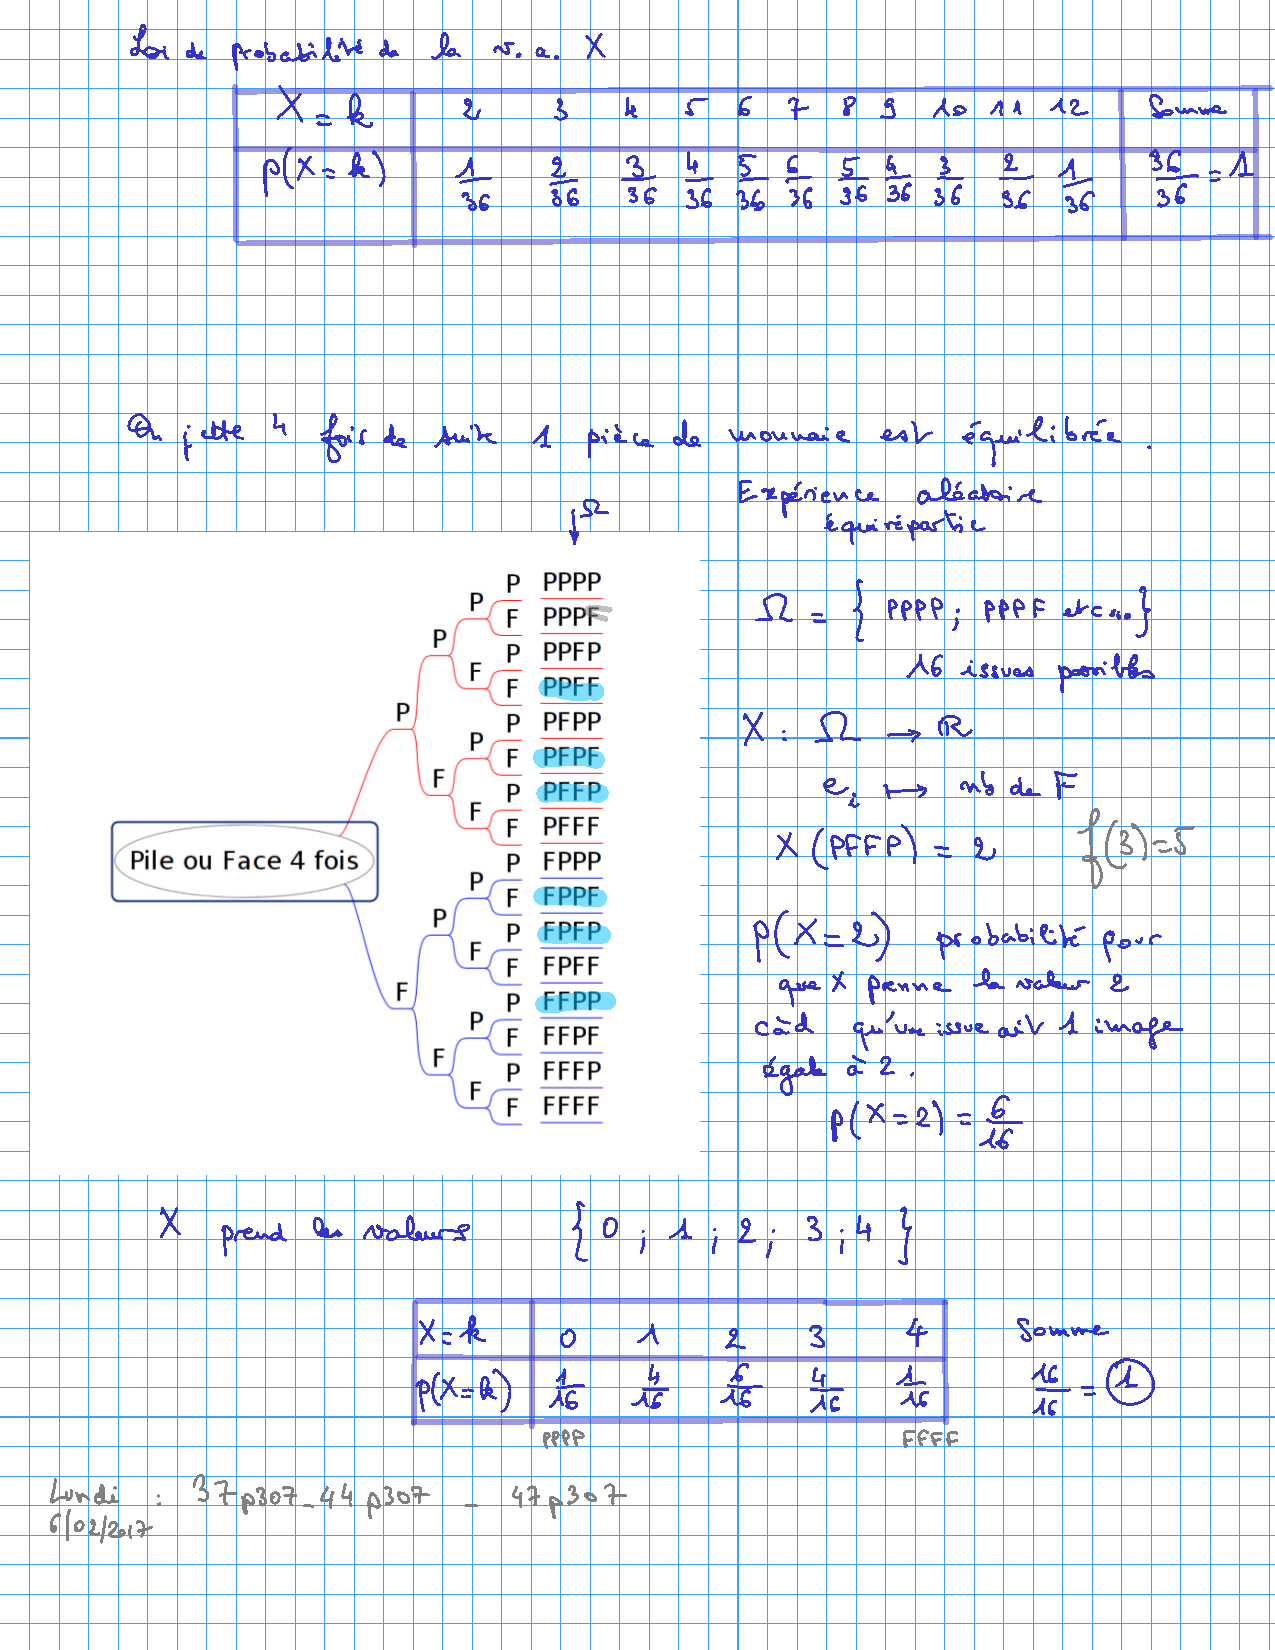 Loi de probabilité de la v.a. X
X = k 2 3 4 5 6 7 8 9 10 11 12 Somme
p(X = k) 1/36 2/36 3/36 4/36 5/36 6/36 5/36 4/36 3/36 2/36 1/36 36/36 = 1
On jette 4 fois de suite 1 pièce de monnaie est équilibrée.
Expérience aléatoire
équirépartie
↓Ω
Pile ou Face 4 fois
P
F
P
F
P
F
P
F
P
F
P
F
P
F
P PPPP
F PPPF
P PPFP
F PPFF
P PFPP
F PFPF
P PFFP
F PFFF
P FPPP
F FPPF
P FPFP
F FPFF
P FFPP
F FFPF
P FFFP
F FFFF
Ω = { PPPP ; PPPF etc... }
16 issues possibles
X : Ω → ℝ
e_i ↦ nb de F
X (PFFP) = 2 f(3) = 5
p(X = 2) probabilité pour
que X prenne la valeur 2
càd qu'une issue ait 1 image
égale à 2.
p(X = 2) = 6/16
X prend les valeurs { 0 ; 1 ; 2 ; 3 ; 4 }
X = k 0 1 2 3 4 Somme
p(X = k) 1/16 4/16 6/16 4/16 1/16 16/16 = 1
PPPP FFFF
Lundi : 37 p307 - 44 p307 - 47 p307
6/02/2017